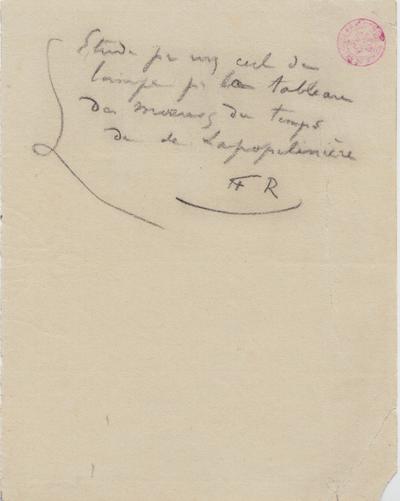 Etude pr un cul de
lampe pr le tableau
des moeurs du temps
de de Lapopelinière
FR